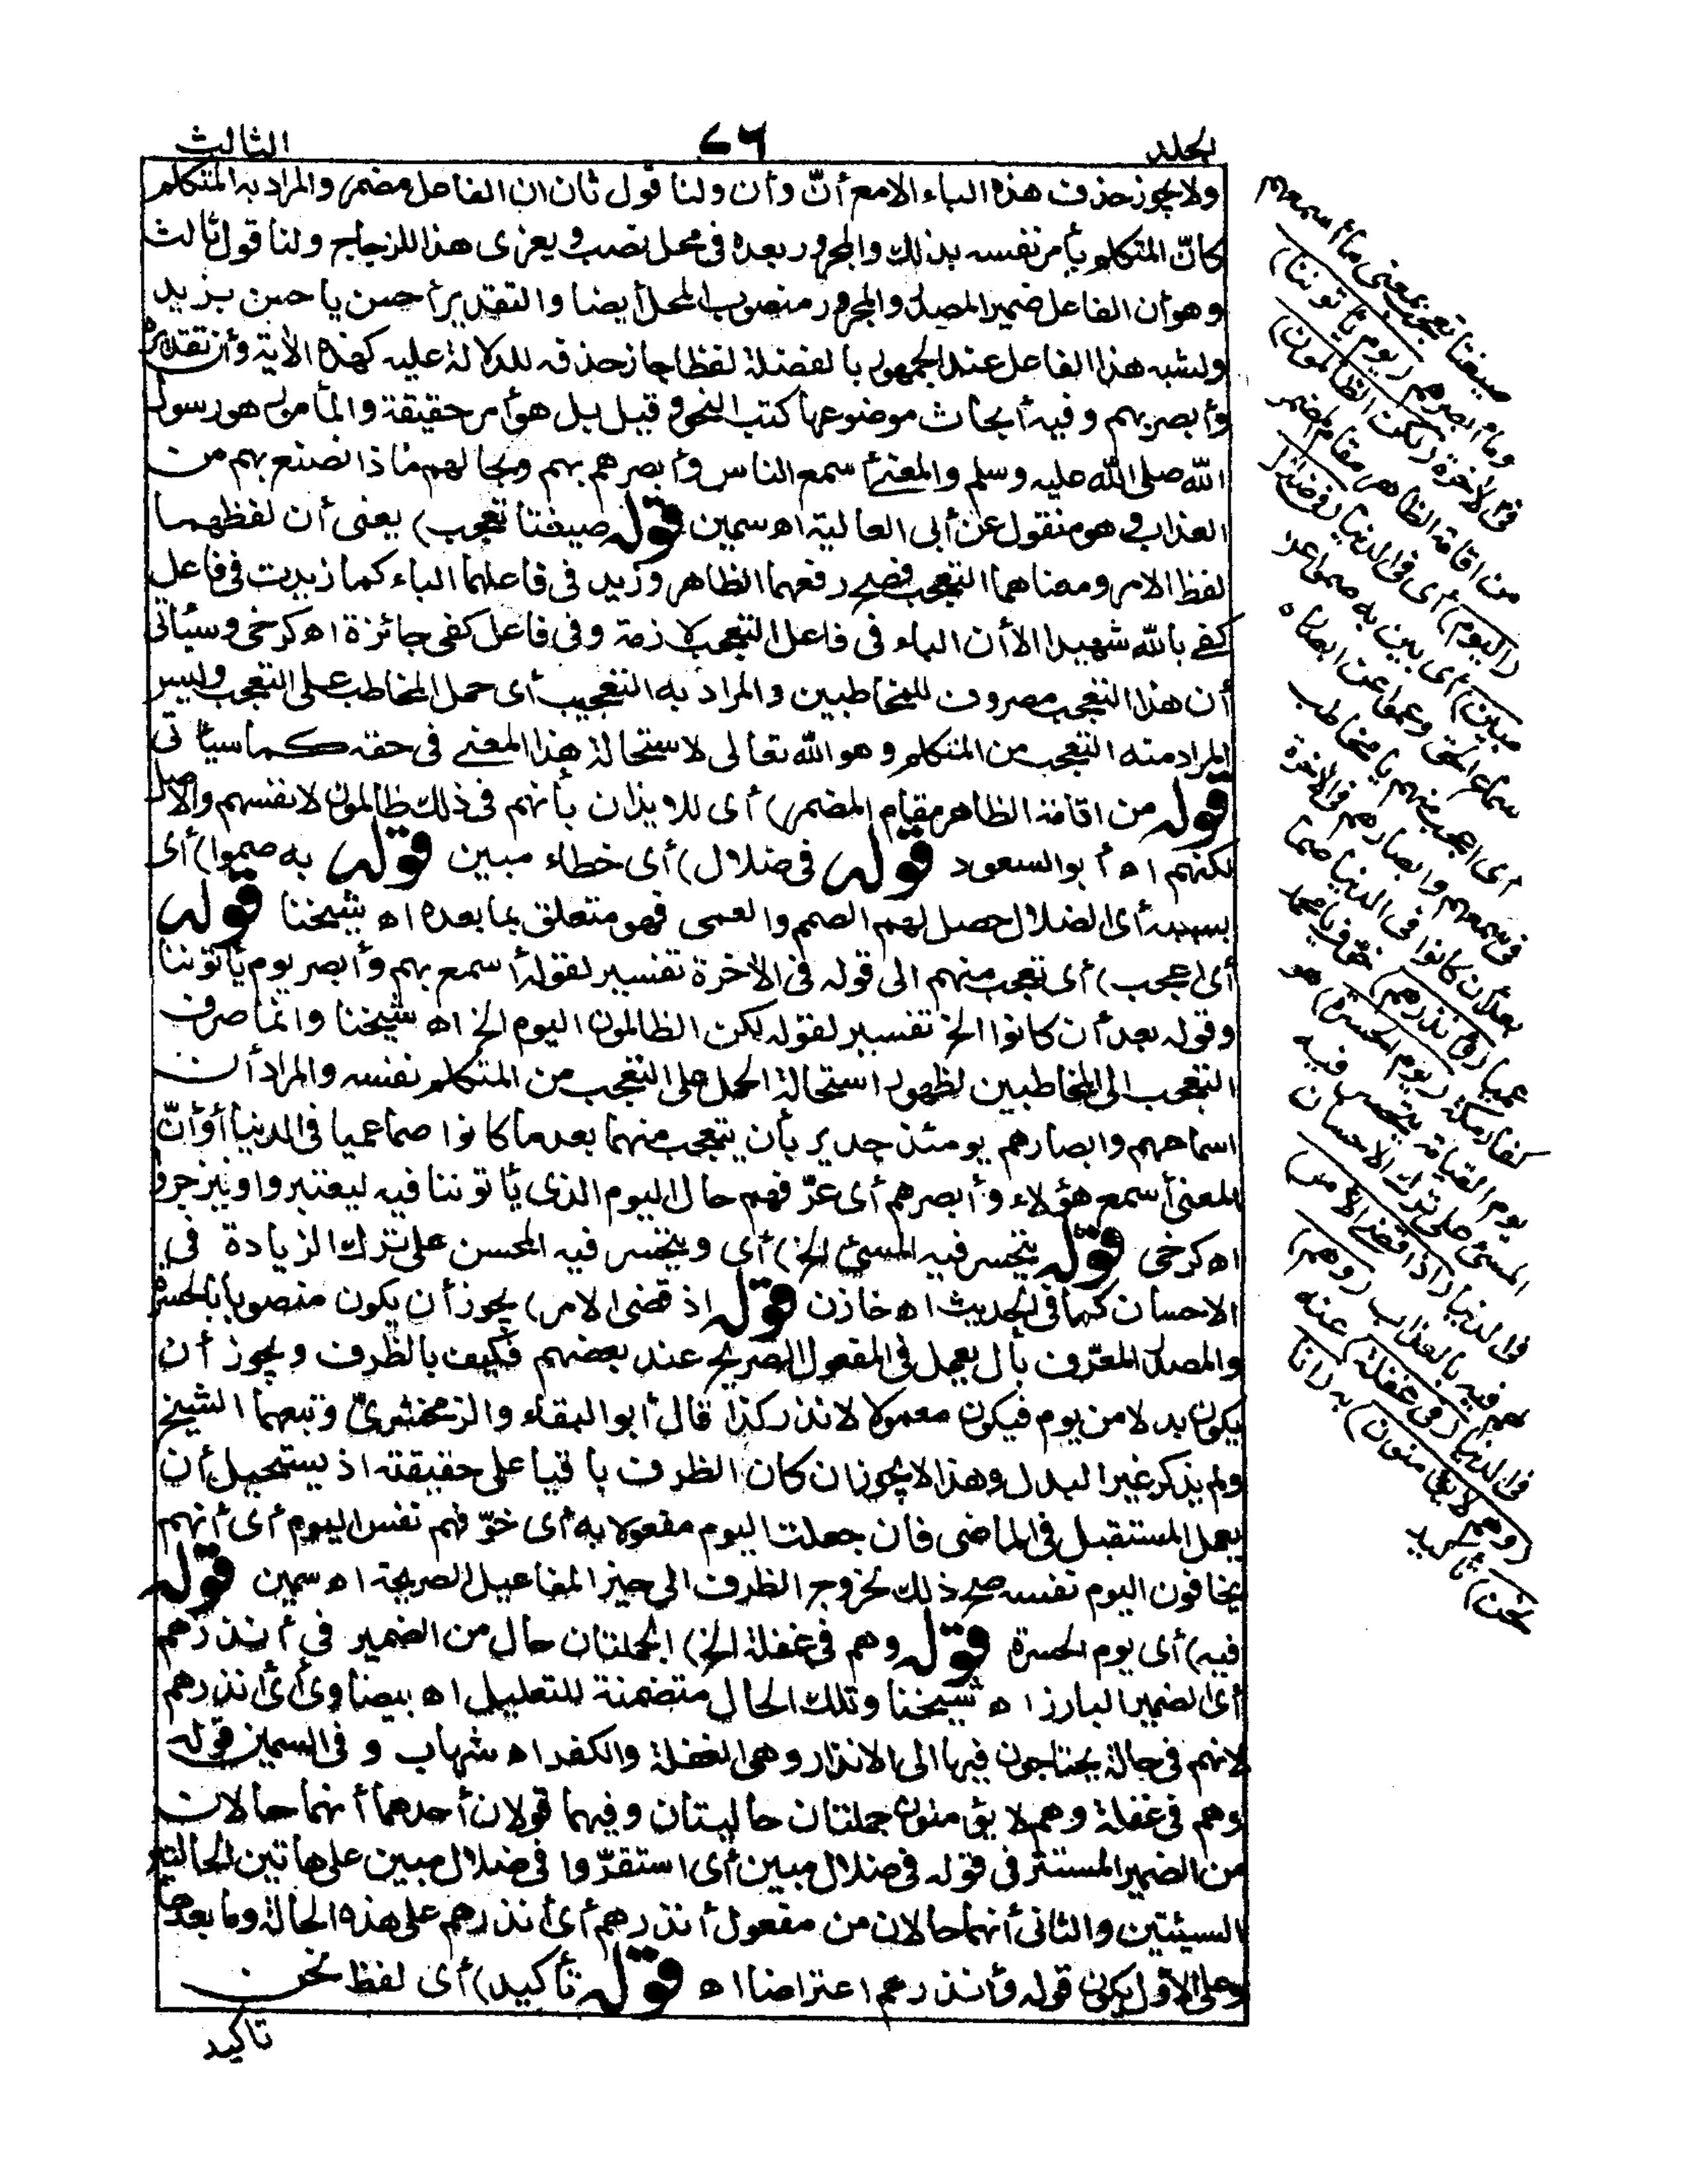 الجلد ٧٦ الثالث
ولا يجوز حذف هذه الباء الامع أنّ وأن ولنا قول ثان ان الفاعل مضمر والمراد به المتكلم
كانّ المتكلم يأمر نفسه بذلك والمجرور بعده فى محل نصب ويعزى هذا للزجاج ولنا قول ثالث
وهو أن الفاعل ضمير المصدر والمجرور منصوب المحل أيضا والتقدير أحسن يا حسن بزيد
ولشبه هذا الفاعل عند الجمهور بالفضلة لفظا جاز حذفه للدلالة عليه كهذه الأية وأن تقديره
وأبصر بهم وفيه أبحاث موضوعها كتب النحو وقيل بل هو أمر حقيقة والمأمور هو رسول
الله صلى الله عليه وسلم والمعنى أسمع الناس وأبصرهم بهم وبحالهم ماذا نصنع بهم من
العذاب وهو منقول عن أبى العالية اه سمين قوله صيغتا تعجب) يعنى أن لفظهما
لفظ الامر ومعناهما التعجب فصح رفعهما الظاهر وزيد فى فاعلهما الباء كما زيدت فى فاعل
كفى بالله شهيدا الا أن الباء فى فاعل التعجب لازمة وفى فاعل كفى جائزة اه كرخى وسيأتى
أن هذا التعجب مصروف للمخاطبين والمراد به التعجيب أى حمل المخاطب على التعجب وليس
المراد منه التعجب من المتكلم وهو الله تعالى لاستحالة هذا المعنى فى حقه كما سيأتى
قوله من اقامة الظاهر مقام المضمر) أى للايذان بأنهم فى ذلك ظالمون لانفسهم والاصل
لكنهم اه أبو السعود قوله فى ضلال) أى خطاء مبين قوله به صموا) أى
بسببه أى الضلال حصل لهم الصمم والعمى فهو متعلق بما بعده اه شيخنا قوله
أى اعجب) أى تعجب منهم الى قوله فى الأخرة تفسير لقوله أسمع بهم وأبصر يوم يأتوننا
وقوله بعد أن كانوا الخ تفسير لقوله لكن الظالمون اليوم الخ اه شيخنا وانما صرف
التعجب الى المخاطبين لظهور استحالة الحمل على التعجب من المتكلم نفسه والمراد أن
اسماعهم وابصارهم يومئذ جدير بأن يتعجب منهما بعد ما كانوا صما عميا فى الدنيا أو أنّ
المعنى أسمع هؤلاء وأبصرهم أى عرّفهم حال اليوم الذى يأتوننا فيه ليعتبروا وينزجروا
اه كرخى قوله يتحسر فيه المسئ الخ) أى ويتحسر فيه المحسن على ترك الزيادة فى
الاحسان كما فى الحديث اه خازن قوله اذ قضى الامر) يجوز أن يكون منصوبا بالحسرة
والمصدر المعرّف بأل يعمل فى المفعول الصريح عند بعضهم فكيف بالظرف ويجوز أن
يكون بدلا من يوم فيكون معمولا لانذر كذا قال أبو البقاء والزمخشرىّ وتبعهما الشيخ
ولم يذكر غير البدل وهذا لا يجوز ان كان الظرف باقيا على حقيقته اذ يستحيل أن
يعمل المستقبل فى الماضى فان جعلت اليوم مفعولا به أى خوّفهم نفس اليوم أى أنهم
يخافون اليوم نفسه صح ذلك لخروج الظرف الى حيز المفاعيل الصريحة اه سمين قوله
فيه) أى يوم الحسرة قوله وهم فى غفلة الخ) الجملتان حال من الضمير فى أنذرهم
أى الضمير البارز اه شيخنا وتلك الحال متضمنة للتعليل اه بيضاوى أى أنذرهم
لانهم فى حالة يحتاجون فيها الى الانذار وهى الغفلة والكفر اه شهاب و فى السمين قوله
وهم فى غفلة وهم لا يؤمنون جملتان حاليتان وفيهما قولان أحدهما أنهما حالان
من الضمير المستتر فى قوله فى ضلال مبين أى استقرّوا فى ضلال مبين على هاتين الحالتين
السيئتين والثانى أنهما حالان من مفعول أنذرهم أى أنذرهم على هذه الحالة وما بعدها
وعلى الاوّل يكون قوله وأنذرهم اعتراضا اه قوله تأكيد) أى لفظ نحن
تاكيد
صيغتا تعجب بمعنى ما أسمعهم
وما أبصرهم (يوم يأتوننا)
فى الأخرة (لكن الظالمون)
من اقامة الظاهر مقام المضمر
(اليوم) أى فى الدنيا (فى ضلال
مبين) أى بين به صموا عن
سماع الحق وعموا عن ابصاره
أى اعجب منهم يا مخاطب
فى سمعهم وابصارهم فى الاخرة
بعد أن كانوا فى الدنيا صما
عميا (وأنذرهم) خوّف يا محمد
كفار مكة (يوم الحسرة) هو
يوم القيامة يتحسر فيه
المسئ على ترك الاحسان
فى الدنيا (اذ قضى الأمر)
لهم فيه بالعذاب (وهم)
فى الدنيا (فى غفلة) عنه
(وهم لا يؤمنون) به (انا
نحن) تأكيد